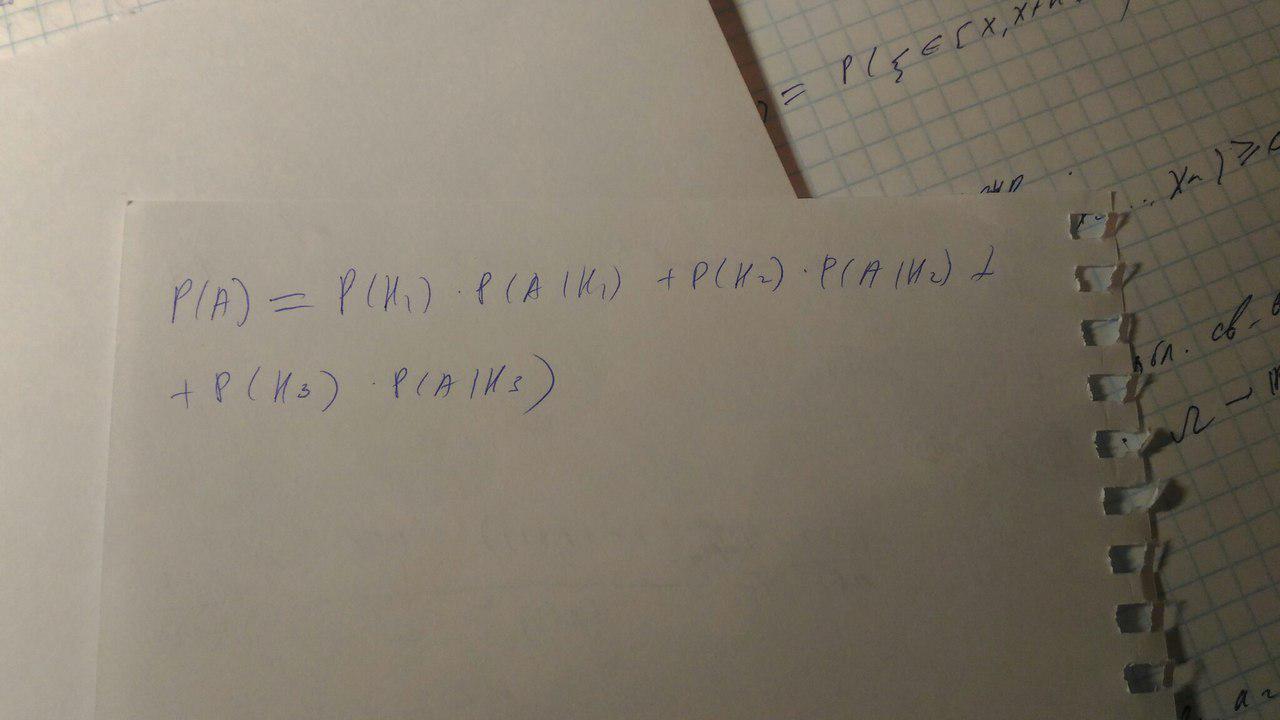 = P(ξ ∈ [x, x+
... Xn) ≥ 0
P(A) = P(H₁) · P(A|H₁) + P(H₂) · P(A|H₂) +
+ P(H₃) · P(A|H₃)
св-в
Ω →